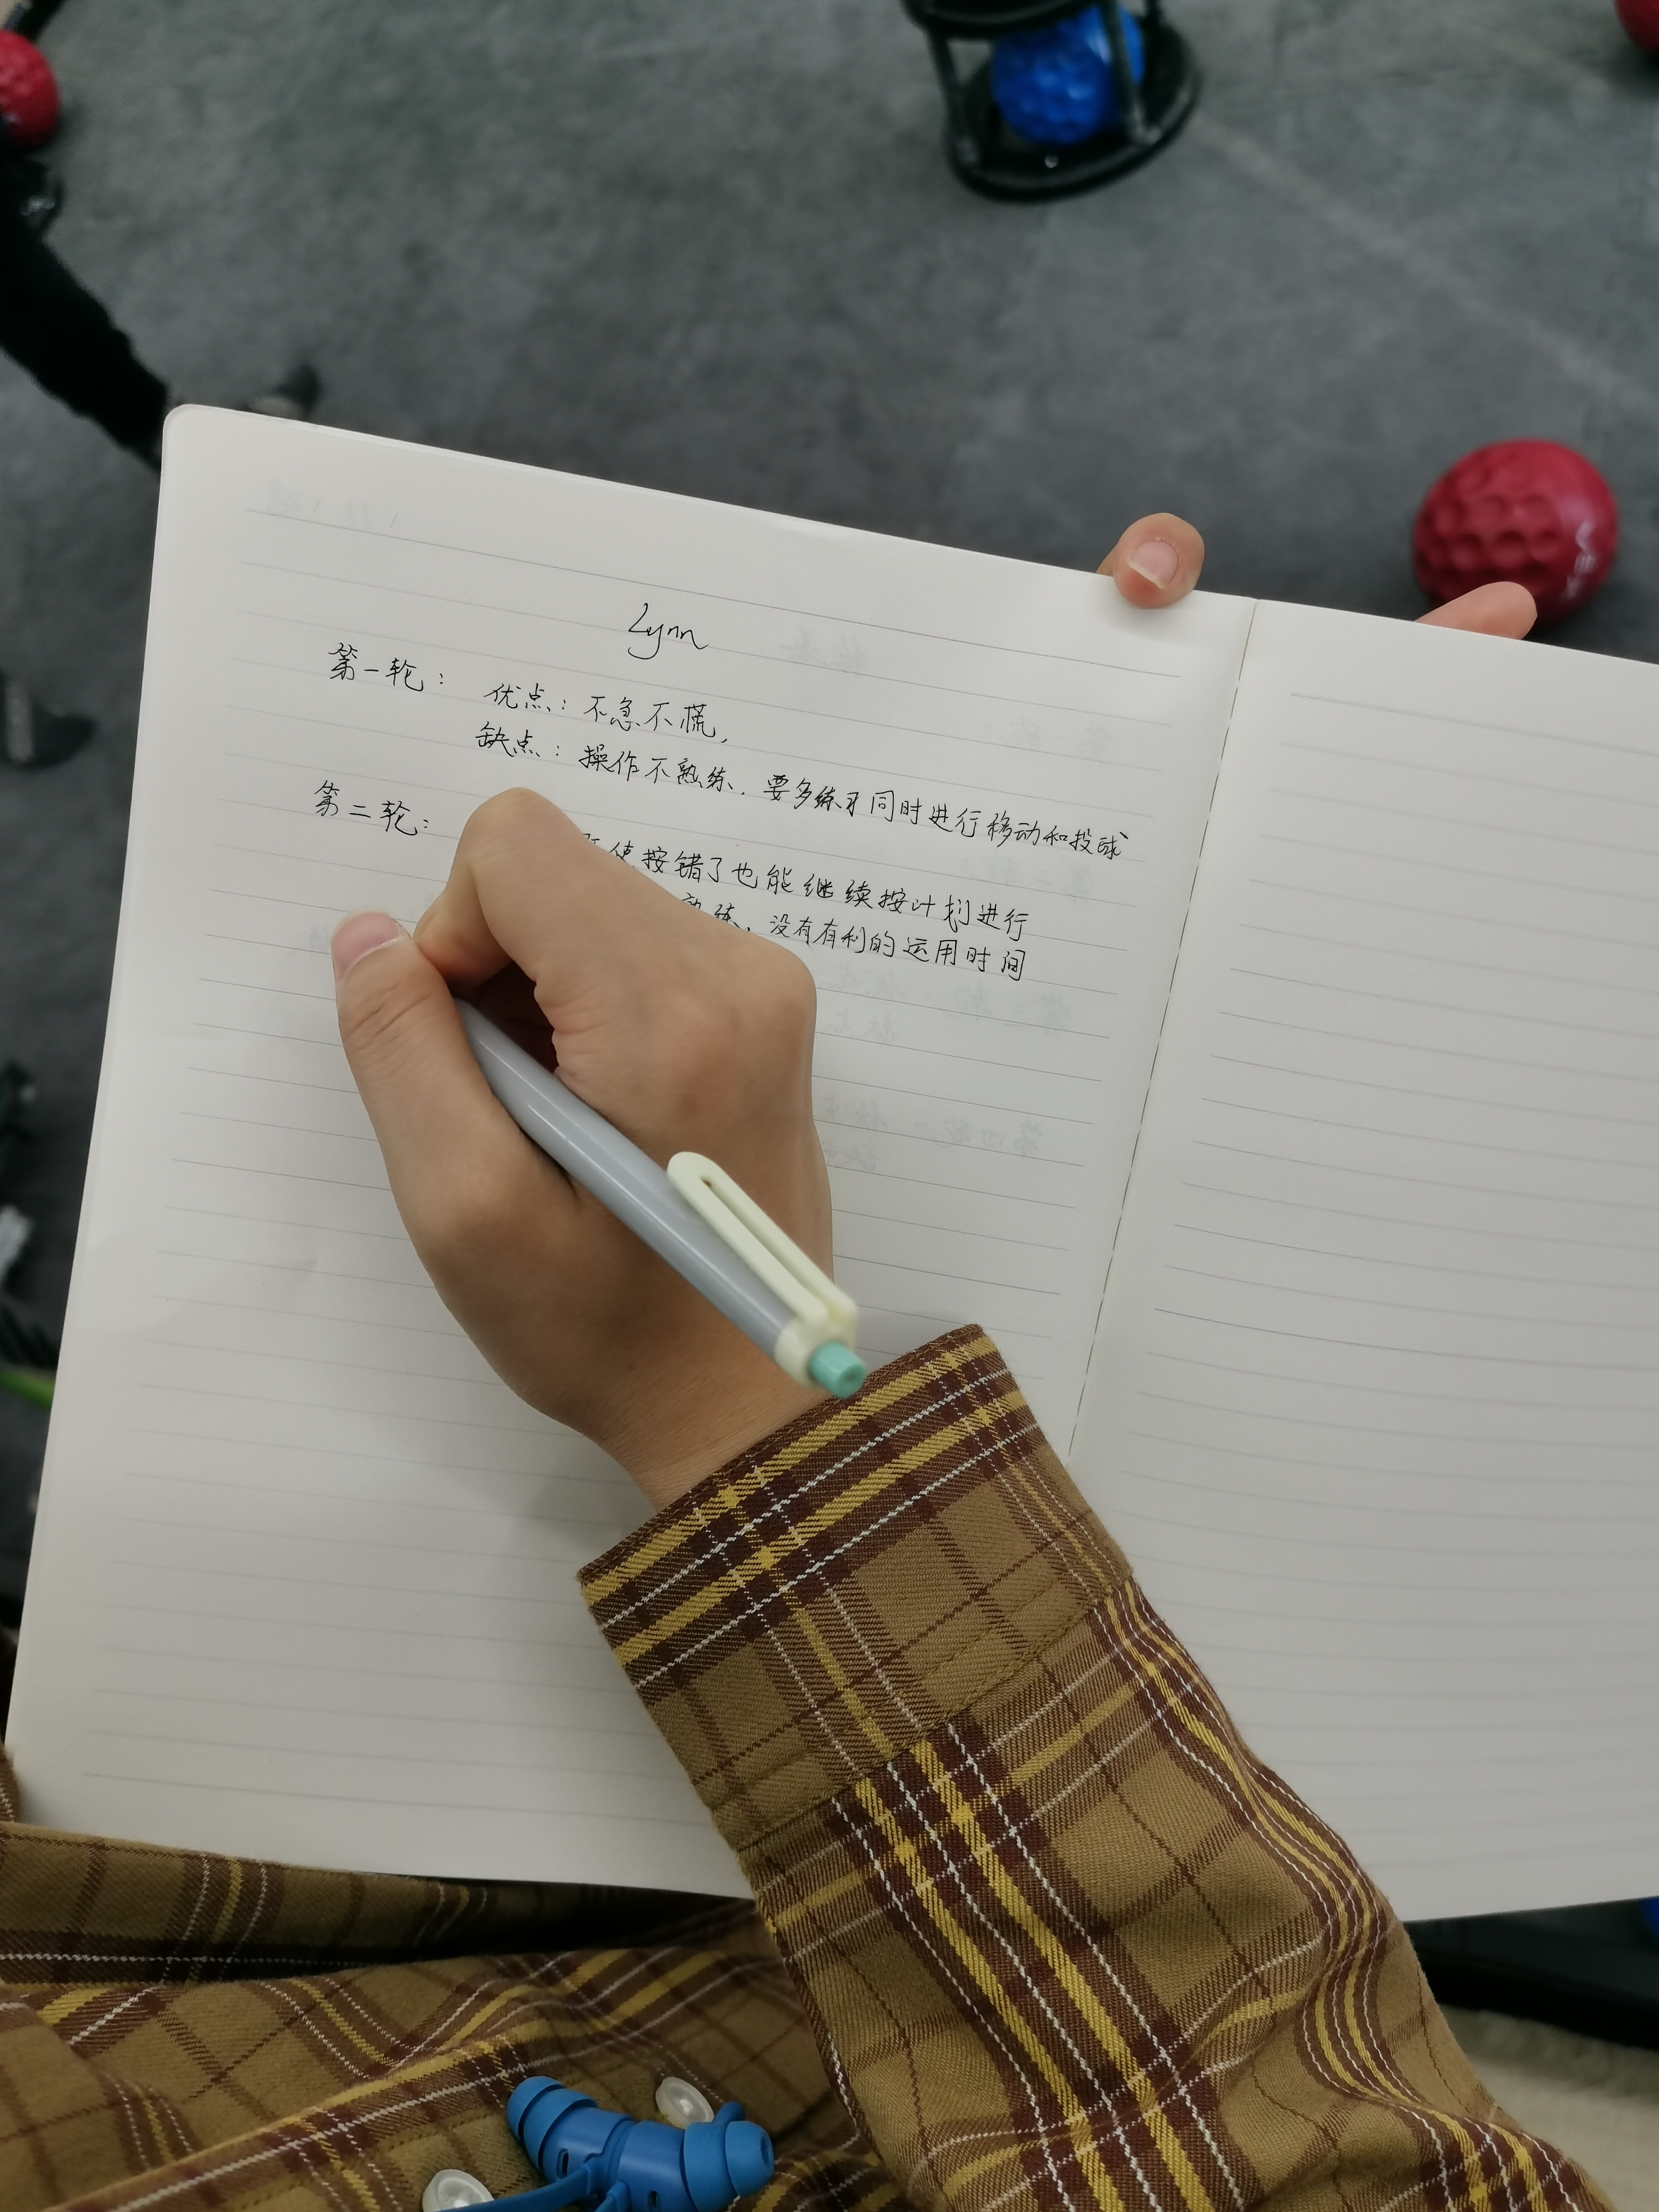 Lynn
第一轮： 优点：不急不慌，
缺点：操作不熟练，要多练习同时进行移动和投球
第二轮：
使按错了也能继续按计划进行
熟练，没有有利的运用时间
VEX